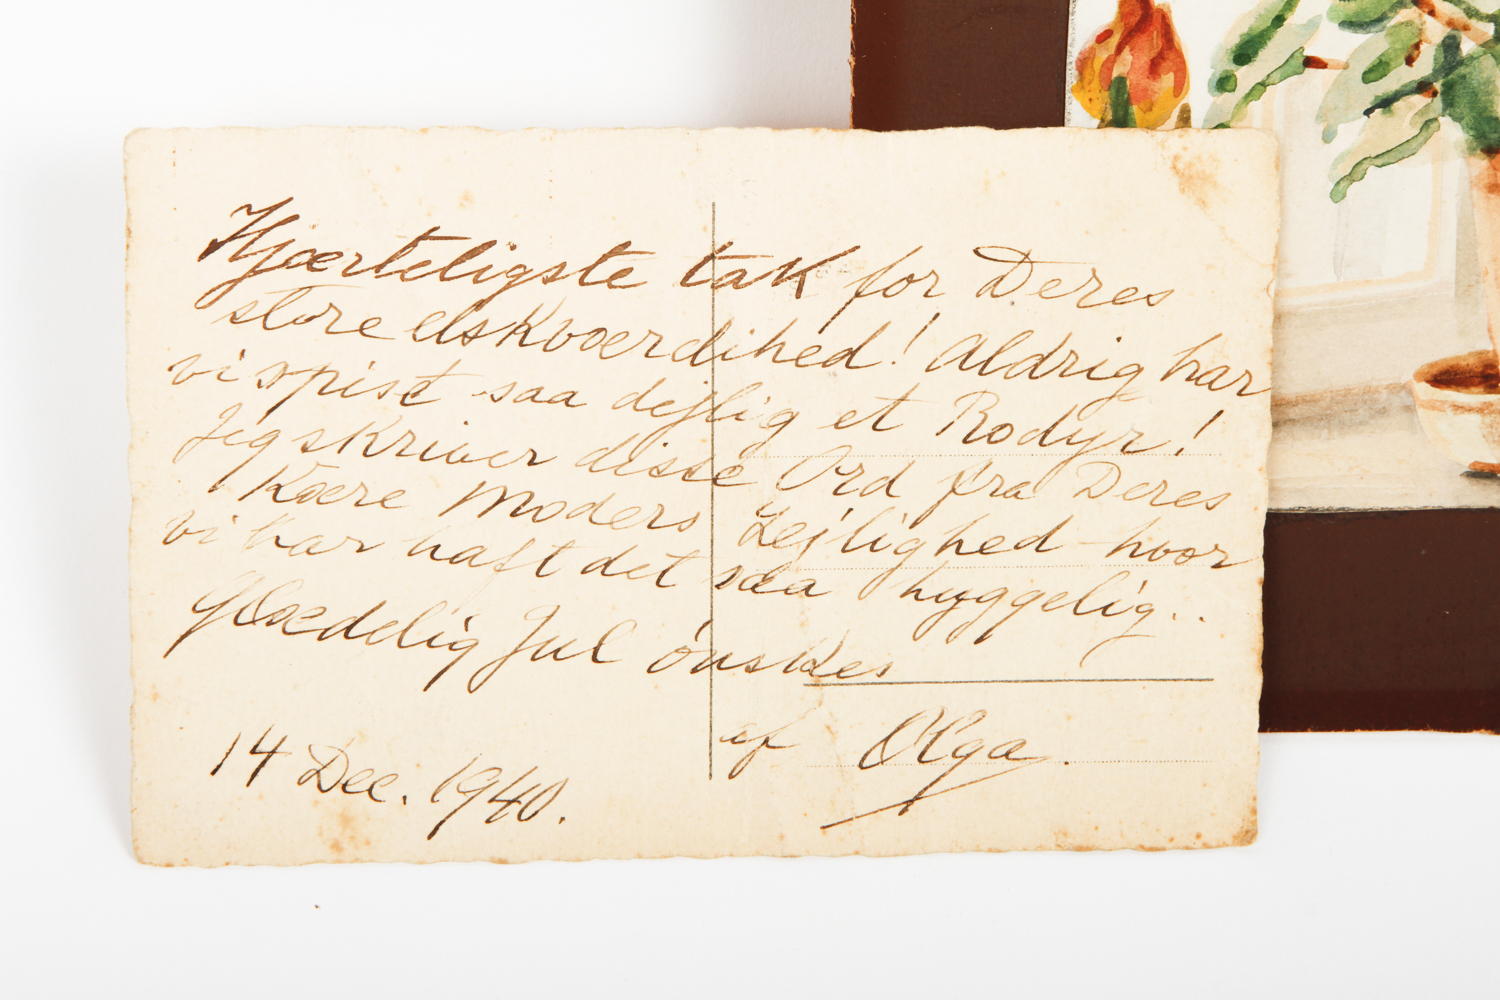 Hjærteligste tak for Deres
store elskværdihed! Aldrig har
vi spist saa dejlig et Rodyr!
Jeg skriver disse Ord fra Deres
Kære Moders Lejlighed hvor
vi har haft det saa hyggelig..
Glædelig Jul ønskes
af Olga.
14 Dec. 1940.